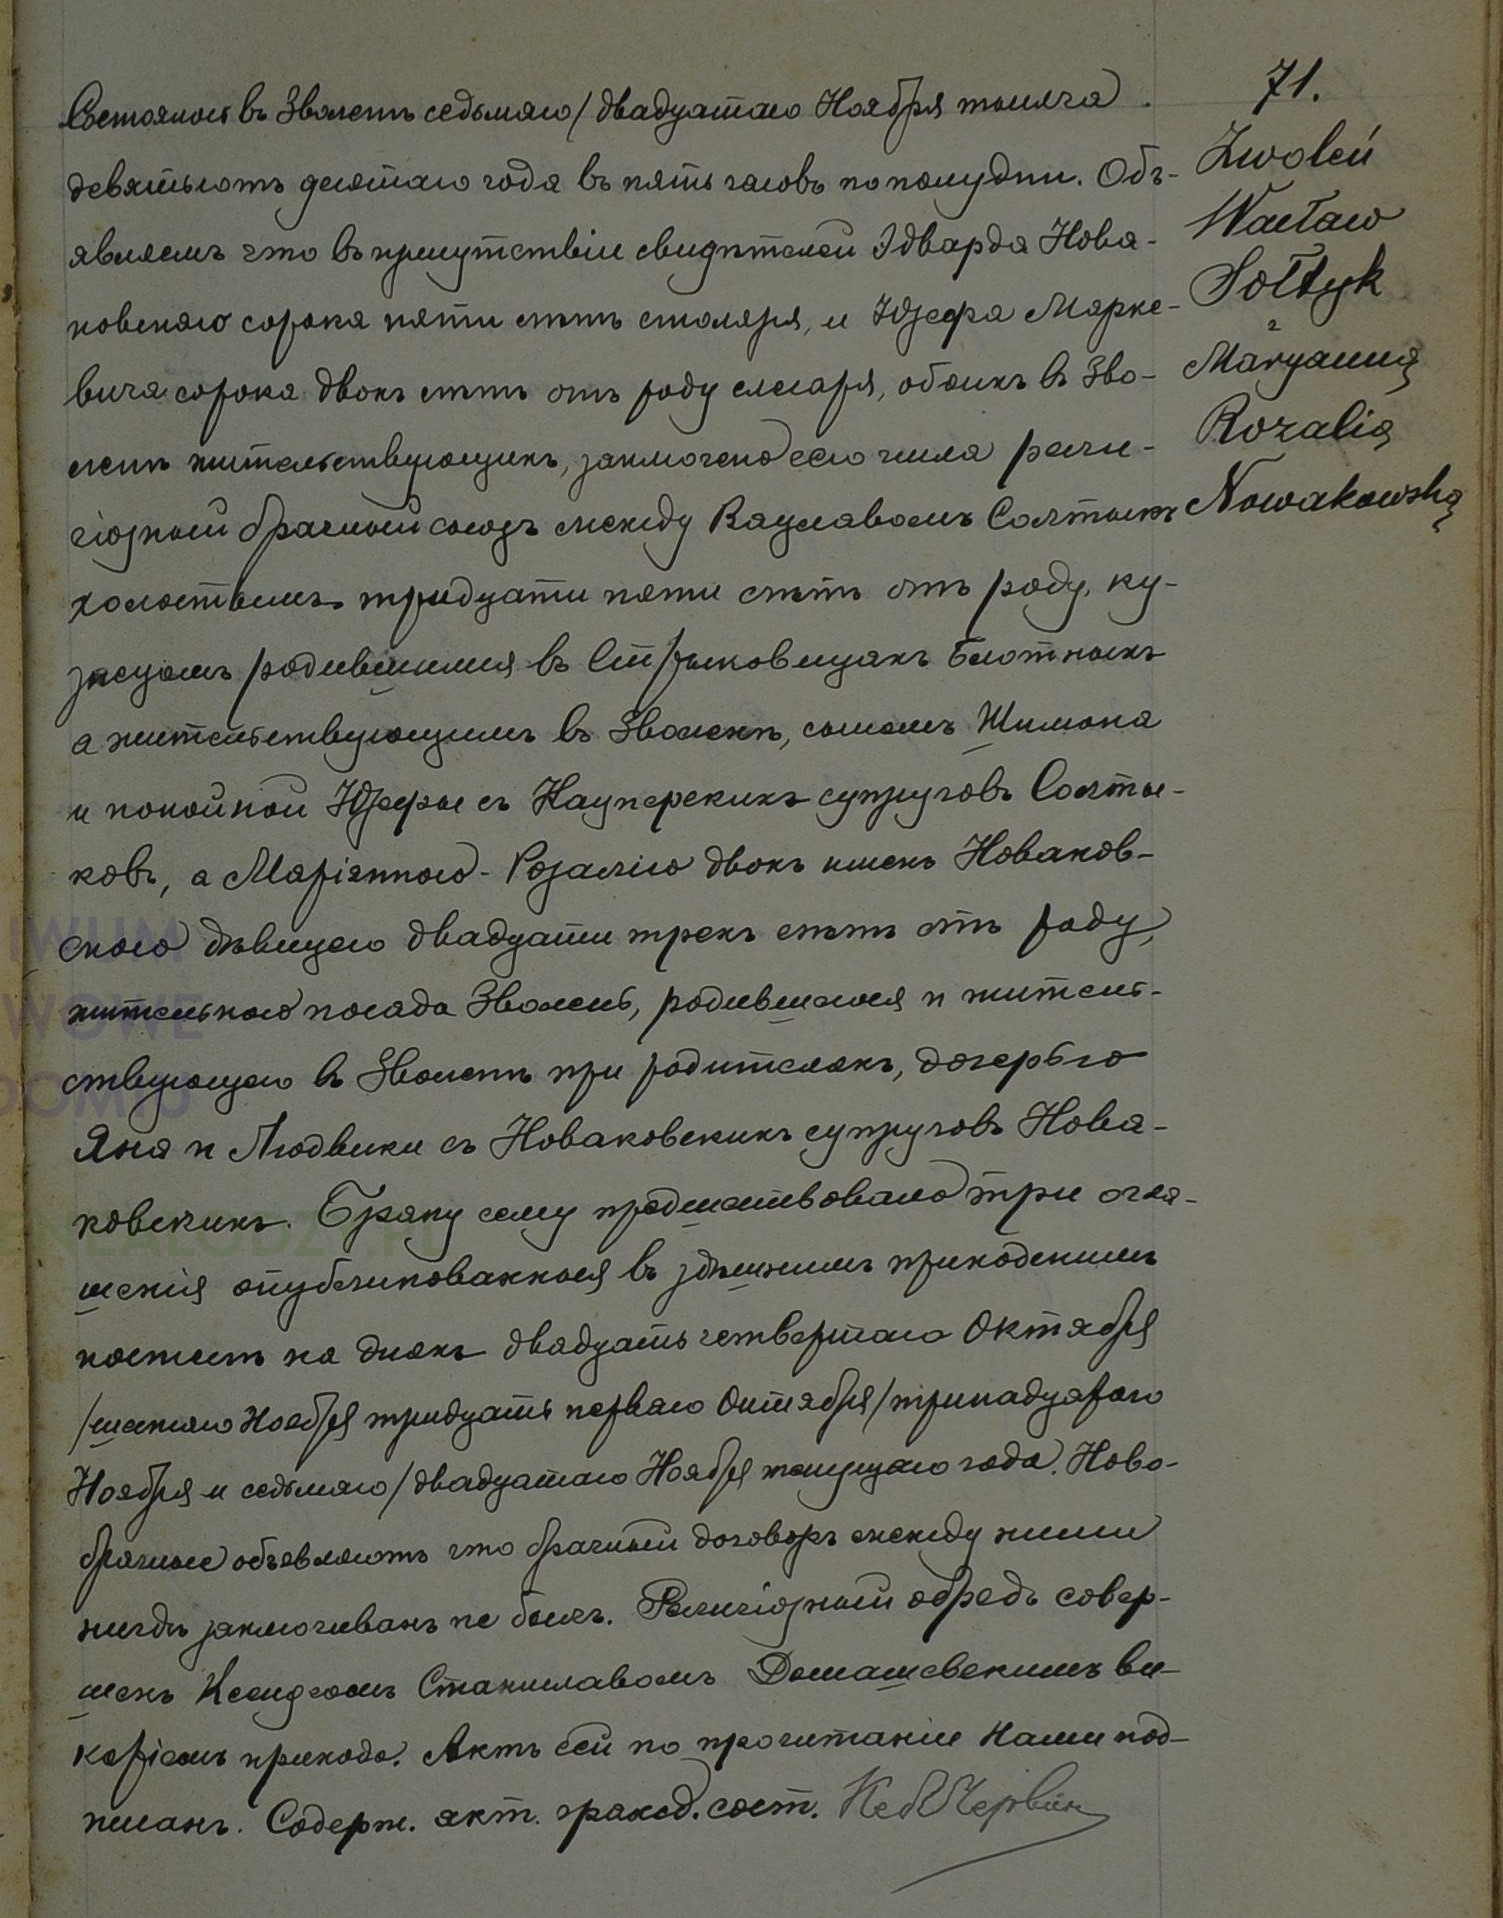 71.
Zwoleń
Wacław
Sołtyk
z
Maryanną
Rozalią
Nowakowską
Состоялось въ Зволеню седьмаго/двадцатаго Ноября тысяча
девятьсотъ десятаго года въ пять часовъ по полудни. Объ-
являемъ что въ присутствіи свидѣтелей Эдварда Нова-
ковскаго сорока пяти лѣтъ столяра, и Юзефа Марке-
вича сорока двохъ лѣтъ отъ роду слесаря, обоихъ въ Зво-
леню жительствующихъ, заключенъ сего числа рели-
гіозный брачный союзъ между Вацлавомъ Солтыкъ
холостымъ тридцати пяти лѣтъ отъ роду, ку-
знецомъ родившимся въ Стрыковицахъ Блотныхъ
а жительствующимъ въ Зволеню, сыномъ Шимона
и покойной Юзефы съ Кацперскихъ супруговъ Солты-
ковъ, а Маріанною-Розаліею двохъ именъ Новаков-
скою дѣвицею двадцати трехъ лѣтъ отъ роду,
жительною посада Зволень, родившеюся и житель-
ствующею въ Зволеню при родителяхъ, дочерью
Яна и Людвики съ Новаковскихъ супруговъ Нова-
ковскихъ. Браку сему предшествовало три огла-
шенія опубликованныя въ здѣшнимъ приходскимъ
костелѣ на дняхъ двадцать четвертаго Октября
/шестаго Ноября тридцать перваго Октября/тринадцатаго
Ноября и седьмаго/двадцатаго Ноября текущаго года. Ново-
брачные объявляютъ что брачный договоръ между ними
нигдѣ заключиванъ не былъ. Религіозный обрядъ совер-
шенъ Ксендзомъ Станиславомъ Домашевскимъ ви-
каріемъ прихода. Актъ сей по прочитаніи Нами под-
писанъ. Содерж. акт. гражд. сост.
IWUM
WOWE
DOMIU